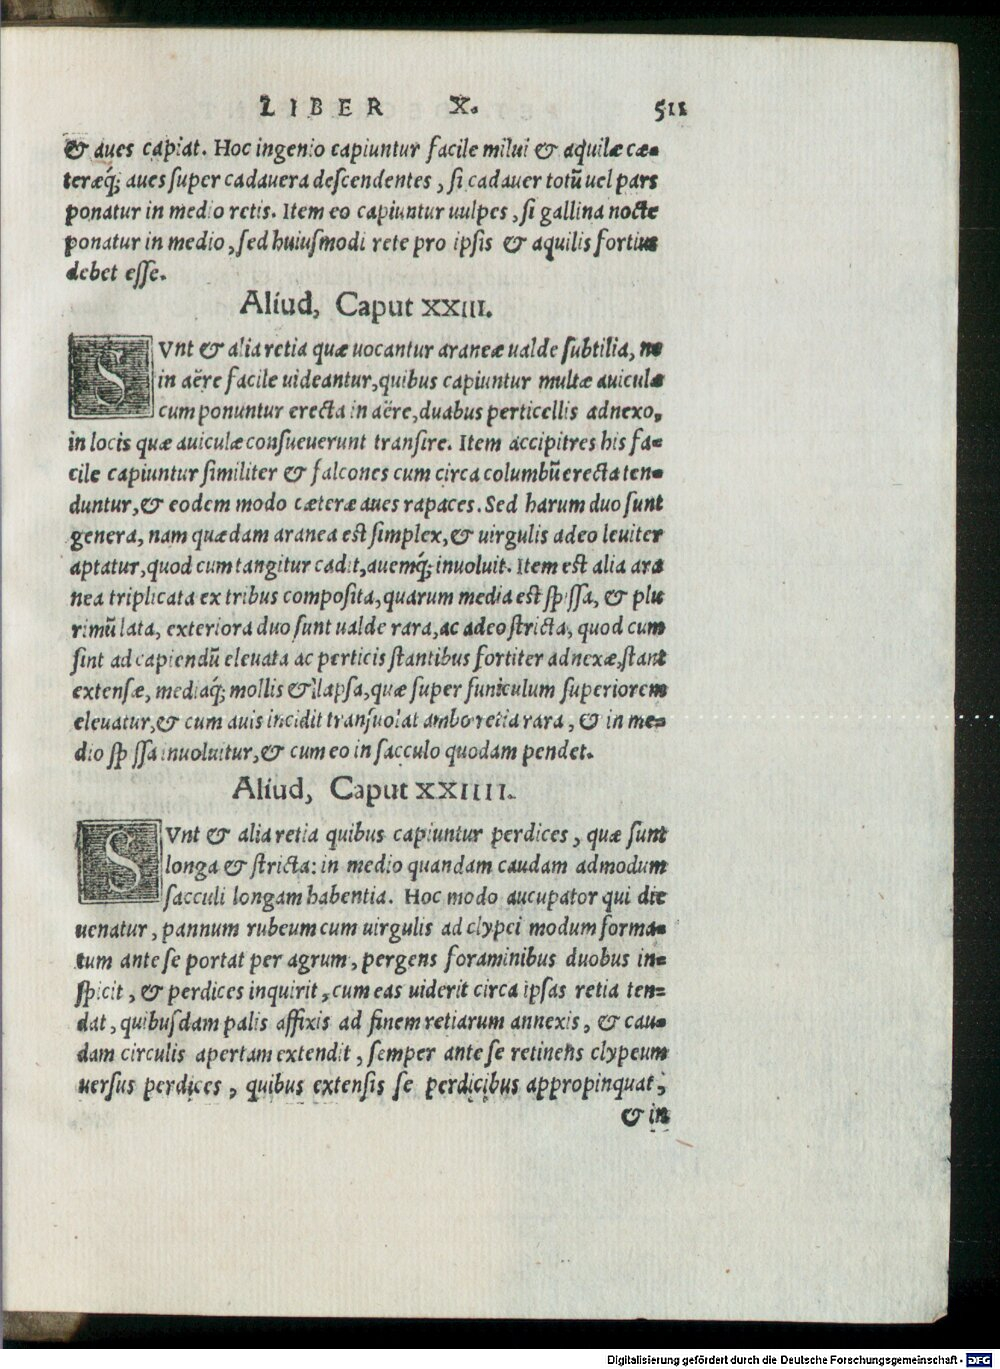 LIBER X. 511
& aues capiat. Hoc ingenio capiuntur facile milui & aquilæ cæ-
teræq́; aues super cadauera descendentes, si cadauer totū uel pars
ponatur in medio retis. Item eo capiuntur uulpes, si gallina nocte
ponatur in medio, sed huiusmodi rete pro ipsis & aquilis fortius
debet esse.
Aliud, Caput XXIII.
SVnt & alia retia quæ uocantur araneæ ualde subtilia, ne
in aëre facile uideantur, quibus capiuntur multæ auiculæ
cum ponuntur erecta in aëre, duabus perticellis adnexo,
in locis quæ auiculæ consueuerunt transire. Item accipitres his fa-
cile capiuntur similiter & falcones cum circa columbū erecta ten-
duntur, & eodem modo cæteræ aues rapaces. Sed harum duo sunt
genera, nam quædam aranea est simplex, & uirgulis adeo leuiter
aptatur, quod cum tangitur cadit, auemq́; inuoluit. Item est alia ara
nea triplicata ex tribus composita, quarum media est spissa, & plu
rimū lata, exteriora duo sunt ualde rara, ac adeo stricta, quod cum
sint ad capiendū eleuata ac perticis stantibus fortiter adnexæ, stant
extensæ, mediaq́; mollis & lapsa, quæ super funiculum superiorem
eleuatur, & cum auis incidit transuolat ambo retia rara, & in me-
dio spissa inuoluitur, & cum eo in sacculo quodam pendet.
Aliud, Caput XXIIII.
SVnt & alia retia quibus capiuntur perdices, quæ sunt
longa & stricta: in medio quandam caudam admodum
sacculi longam habentia. Hoc modo aucupator qui die
uenatur, pannum rubeum cum uirgulis ad clypei modum forma-
tum ante se portat per agrum, pergens foraminibus duobus in-
spicit, & perdices inquirit, cum eas uiderit circa ipsas retia ten-
dat, quibusdam palis affixis ad finem retiarum annexis, & cau-
dam circulis apertam extendit, semper ante se retinens clypeum
uersus perdices, quibus extensis se perdicibus appropinquat,
& in
Digitalisierung gefördert durch die Deutsche Forschungsgemeinschaft - DFG